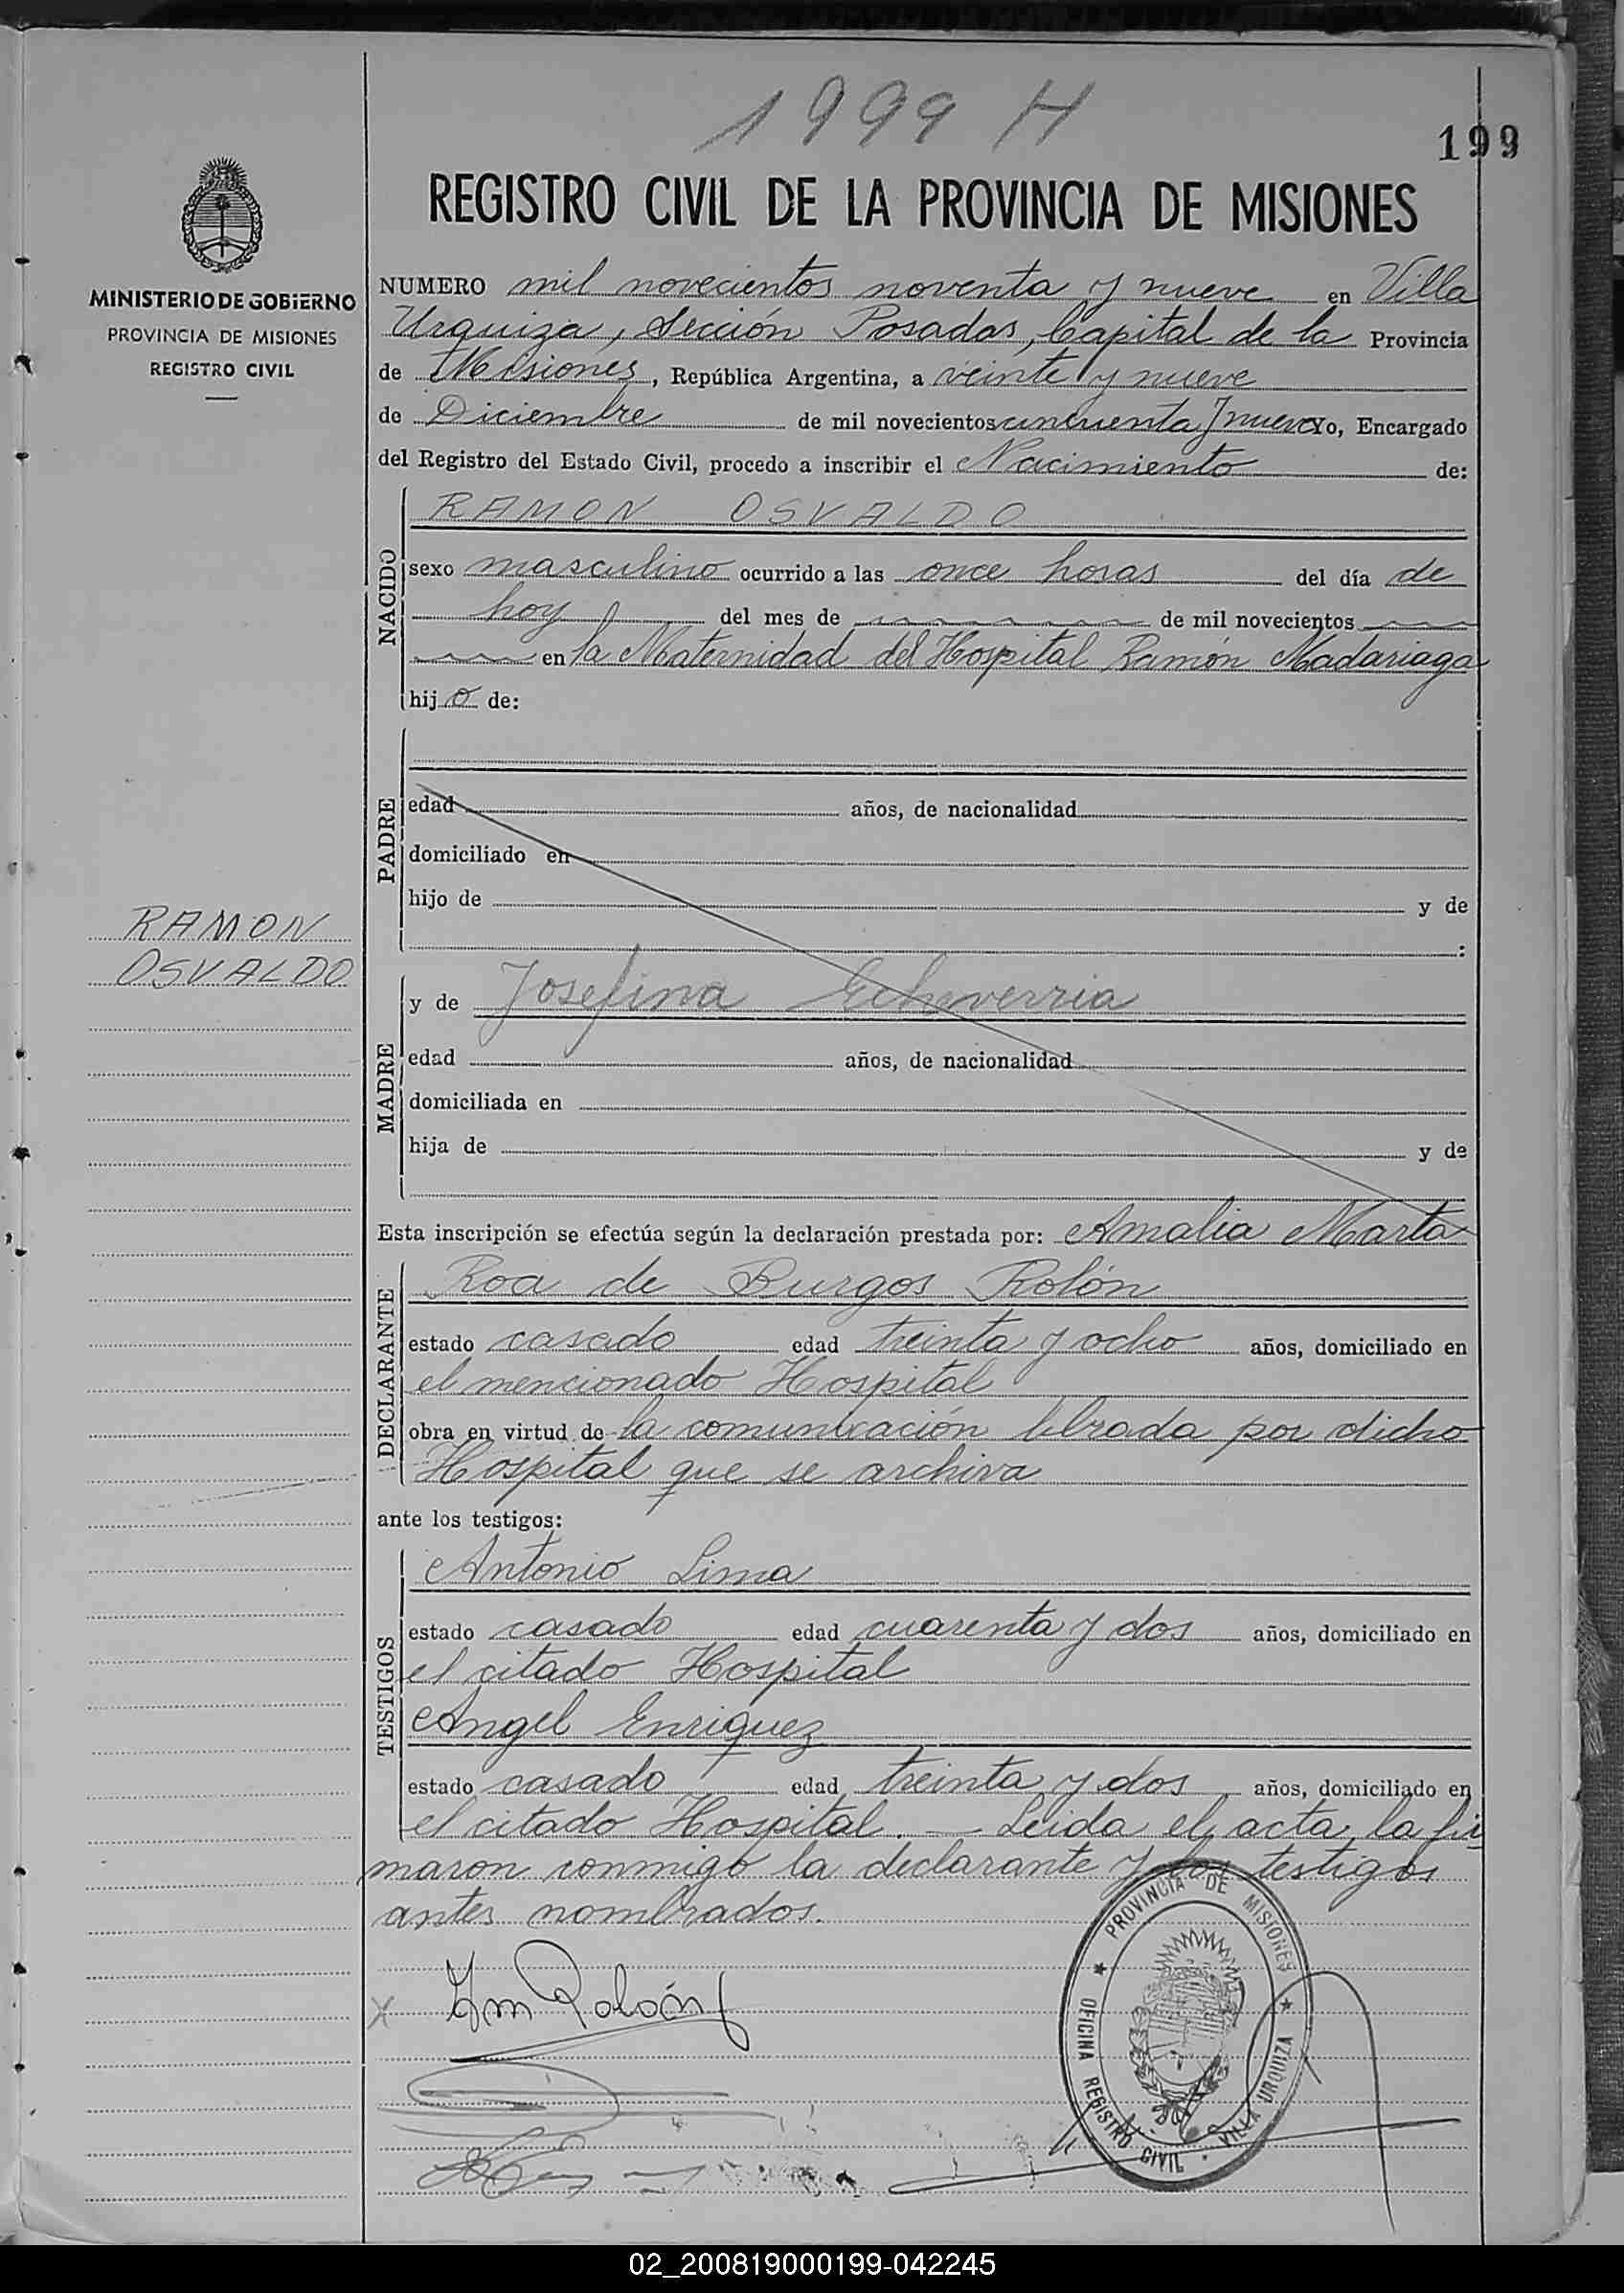 1999 H
199
REGISTRO CIVIL DE LA PROVINCIA DE MISIONES
MINISTERIO DE GOBIERNO
PROVINCIA DE MISIONES
REGISTRO CIVIL
NUMERO mil novecientos noventa y nueve en Villa
Urquiza, Sección Posadas, Capital de la Provincia
de Misiones, República Argentina, a veinte y nueve
de Diciembre de mil novecientos cincuenta y nueve Yo, Encargado
del Registro del Estado Civil, procedo a inscribir el Nacimiento de:
NACIDO
RAMON OSVALDO
sexo masculino ocurrido a las once horas del día de
hoy del mes de de mil novecientos
en la Maternidad del Hospital Ramón Madariaga
hijo de:
PADRE
edad años, de nacionalidad
domiciliado en
hijo de y de
:
RAMON
OSVALDO
MADRE
y de Josefina Echeverria
edad años, de nacionalidad
domiciliada en
hija de y de
Esta inscripción se efectúa según la declaración prestada por: Amalia Marta
DECLARANTE
Roa de Burgos Rolón
estado casado edad treinta y ocho años, domiciliado en
el mencionado Hospital
obra en virtud de la comunicación librada por dicho
Hospital que se archiva
ante los testigos:
TESTIGOS
Antonio Lima
estado casado edad cuarenta y dos años, domiciliado en
el citado Hospital
Angel Enriquez
estado casado edad treinta y dos años, domiciliado en
el citado Hospital. — Leida el acta, la fir
maron conmigo la declarante y los testigos
antes nombrados.
PROVINCIA DE MISIONES
OFICINA REGISTRO CIVIL · VILLA URQUIZA
X Rolón
02_200819000199-042245